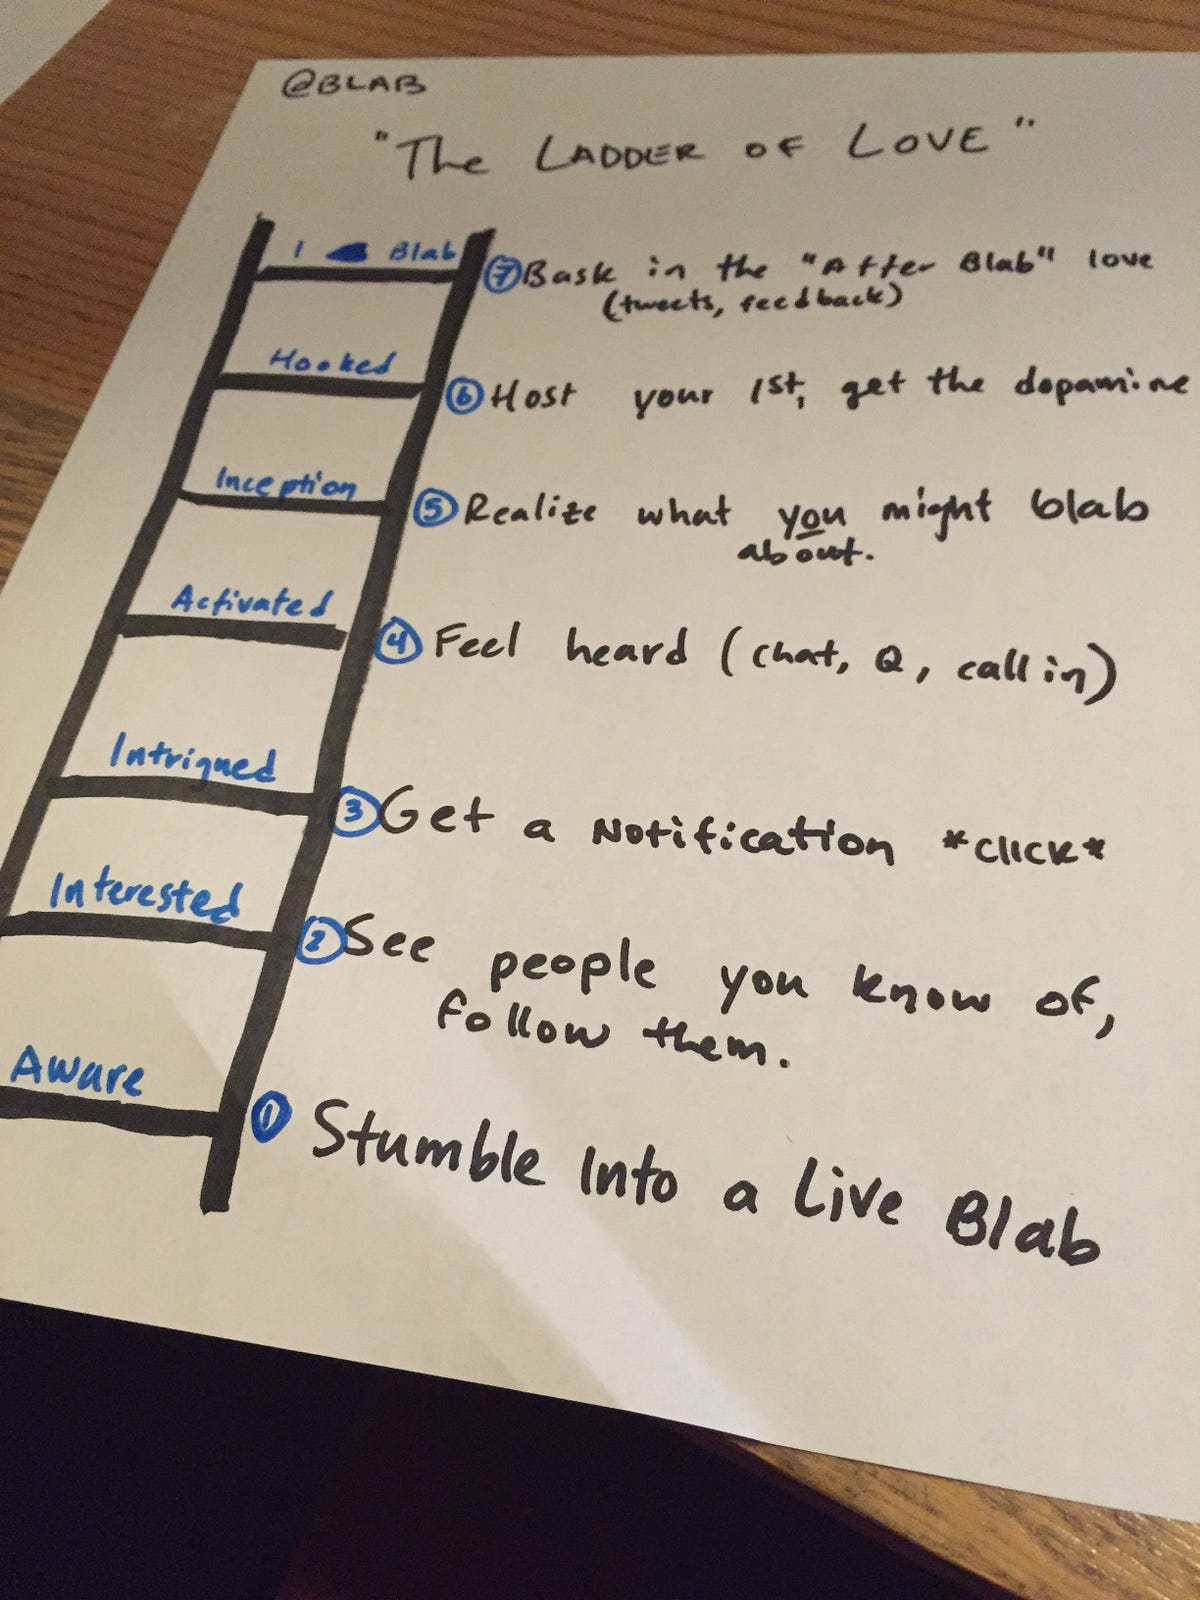 @BLAB
"The LADDER OF LOVE"
I Blab
⑦ Bask in the "After Blab" love
(tweets, feedback)
Hooked
⑥ Host your 1st, get the dopamine
Inception
⑤ Realize what you might blab
about.
Activated
④ Feel heard (chat, Q, call in)
Intrigued
③ Get a Notification *click*
Interested
② See people you know of,
follow them.
Aware
① Stumble Into a Live Blab